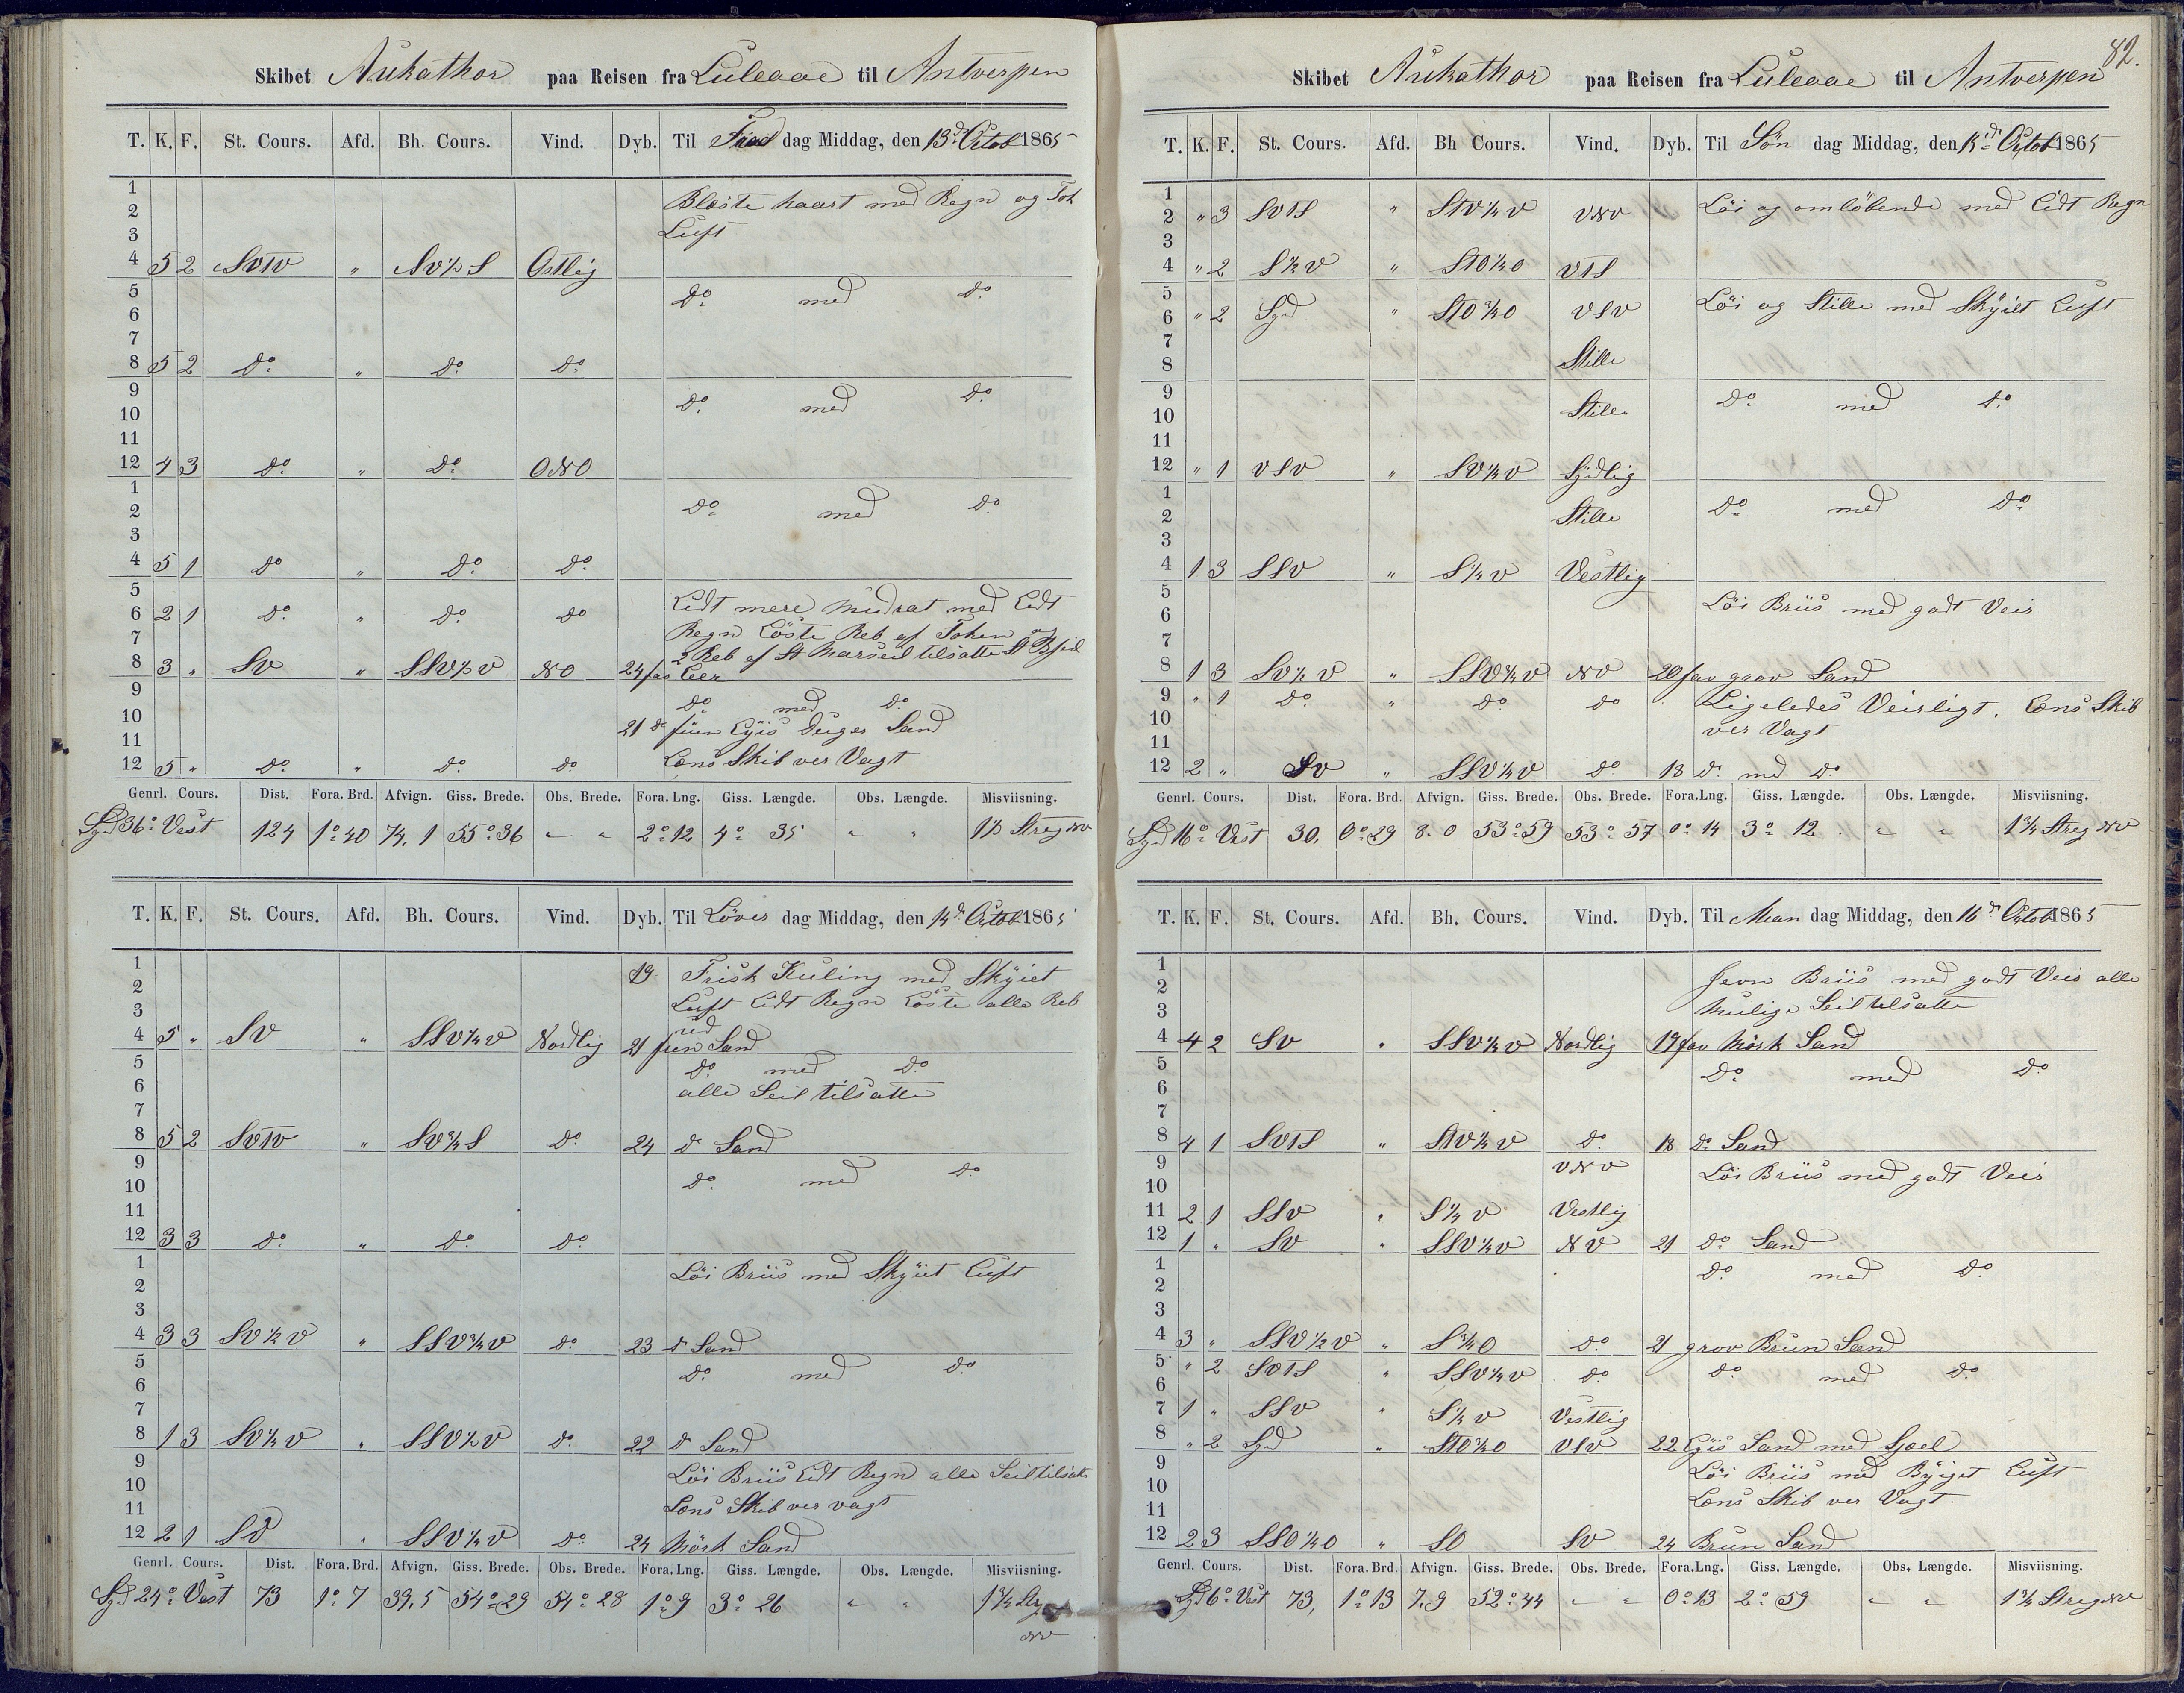 Skibet Aukathor paa Reisen fra Luleaae til Antverpen
T. K. F. St. Cours. Afd. Bh. Cours. Vind. Dyb. Til Fre dag Middag, den 13de Octob 1865
1 Blæste haart med Regn og Tok
2
3 Luft
4 5 2 SVTV " SV½S Ostlig
5 Do med Do
6
7
8 5 2 Do " Do Do
9 Do med Do
10
11
12 4 3 Do " Do ONO
1
2 Do med Do
3
4 5 1 Do " Do Do
5 Lidt mere Mudrat med Lidt
6 2 1 Do " Do Do
7 Regn Löste Reb af Foken og
8 3 " SV " SSV½V NO 24 fav Leer
2 Reb af St Marseil tilsatte
9 Do med Do
10 21 Do fiin Lÿis Sand
11
12 5 " Do " Do Do Læns Skib ver Vagt
Genrl. Cours. Dist. Fora. Brd. Afvign. Giss. Brede. Obs. Brede. Fora. Lng. Giss. Længde. Obs. Længde. Misviisning.
Syd 36° Vest 124 1° 40 74,1 55° 36 " " 2° 12 4° 35 " " 1½ Streg NV
T. K. F. St. Cours. Afd. Bh. Cours. Vind. Dyb. Til Löver dag Middag, den 14de Octob 1865
1 19 Frisk Kuling med Skÿiet
2 Luft Lidt Regn Löste alle Reb
3 ud
4 5 " SV " SSV¼V Nordlig 21 fiin Sand
5 Do med Do
6 alle Seil tilsatte
7
8 5 2 SVTV " SV¾S Do 24 Do Sand
9 Do med Do
10
11
12 3 3 Do " Do Do
1 Löi Briis med Skÿiet Luft
2
3
4 3 3 SV½V " SSV¾V Do 23 Do Sand
5 Do med Do
6
7
8 1 3 SV¼V " SSV½V Do 22 Do Sand
9 Löi Briis Lidt Regn alle Seil tilsat
10
11 Læns Skib ver vagt
12 2 1 SV " SSV¼V Do 24 Mörk Sand
Genrl. Cours. Dist. Fora. Brd. Afvign. Giss. Brede. Obs. Brede. Fora. Lng. Giss. Længde. Obs. Længde. Misviisning.
Syd 24° Vest 73 1° 7 39,5 54° 29 54° 28 1° 9 3° 26 " " 1¾ Str
NV
82.
Skibet Aukathor paa Reisen fra Luleaae til Antverpen
T. K. F. St. Cours. Afd. Bh Cours. Vind. Dyb. Til Sön dag Middag, den 15de Octob 1865
1
2 " 3 SVTS " STV¼V VNV Löi og omlöbende med Lidt Regn
3
4 " 2 S½V " STO¼O VTS
5 Löi og Stille med Skÿiet Luft
6 " 2 Syd " STO¾O VSV
7
8 Stille
9 Do med Do
10 Stille
11
12 " 1 VSV " SV¼V Sydlig
1 Do med Do
2 Stille
3
4 1 3 SSV " S¼V Vestlig
5
6 Löi Briis med godt Veir
7
8 1 3 SV½V " SSV¾V NV 20 fav grov Sand
9 " 1 Do " Do Do Ligeledes Veirligt. Læns Skib
10 ver Vagt
11
12 2 " SV " SSV¼V Do 13 Do med Do
Genrl. Cours. Dist. Fora. Brd. Afvign. Giss. Brede. Obs. Brede. Fora.Lng. Giss. Længde. Obs. Længde. Misviisning.
Syd 16° Vest 30, 0° 29 8.0 53° 59 53° 57 0° 14 3° 12 " " 1¾ Streg NV
T. K. F. St. Cours. Afd. Bh. Cours. Vind. Dyb. Til Man dag Middag, den 16de Octob 1865
1 Jevn Briis med godt Veir alle
2
3 Mulige Seil tilsatte
4 4 2 SV " SSV¼V Nordlig 19 fav Mörk Sand
5 Do med Do
6
7
8 4 1 SVTS " STV¼V Do 18 Do Sand
9 VNV Löi Briis med godt Veir
10
11 2 1 SSV " S¼V Vestlig
12 1 " SV " SSV¼V NV 21 Do Sand
1 Do med Do
2
3
4 3 " SSV½V " S¾O Do 21 grov Brun Sand
5 " 2 SVTS " SSV¼V Do Do med Do
6
7 1 " SSV " S¼V Vestlig
8 " 2 Syd " STO¾O VSV 22 Lÿis Sand med Sjæl
9 Löi Briis med Bÿiget Luft
10
11 Læns Skib ver Vagt.
12 2 3 SSO¼O " SO SV 24 Brun Sand
Genrl. Cours. Dist. Fora. Brd. Afvign. Giss. Brede. Obs. Brede. Fora.Lng. Giss. Længde. Obs. Længde. Misviisning.
Syd 6° Vest 73, 1° 13 7.9 52° 44 " " 0° 13 2° 59 " " 1¾ Streg NV